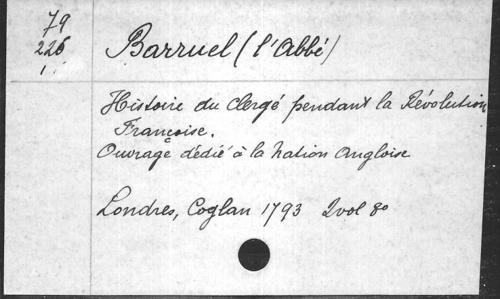 79
226
1
Barruel (l'Abbé)
Histoire du Clergé pendant la Révolution
Françoise.
Ouvrage dédié à la nation Angloise
Londres, Coglan 1793 2vol 8o